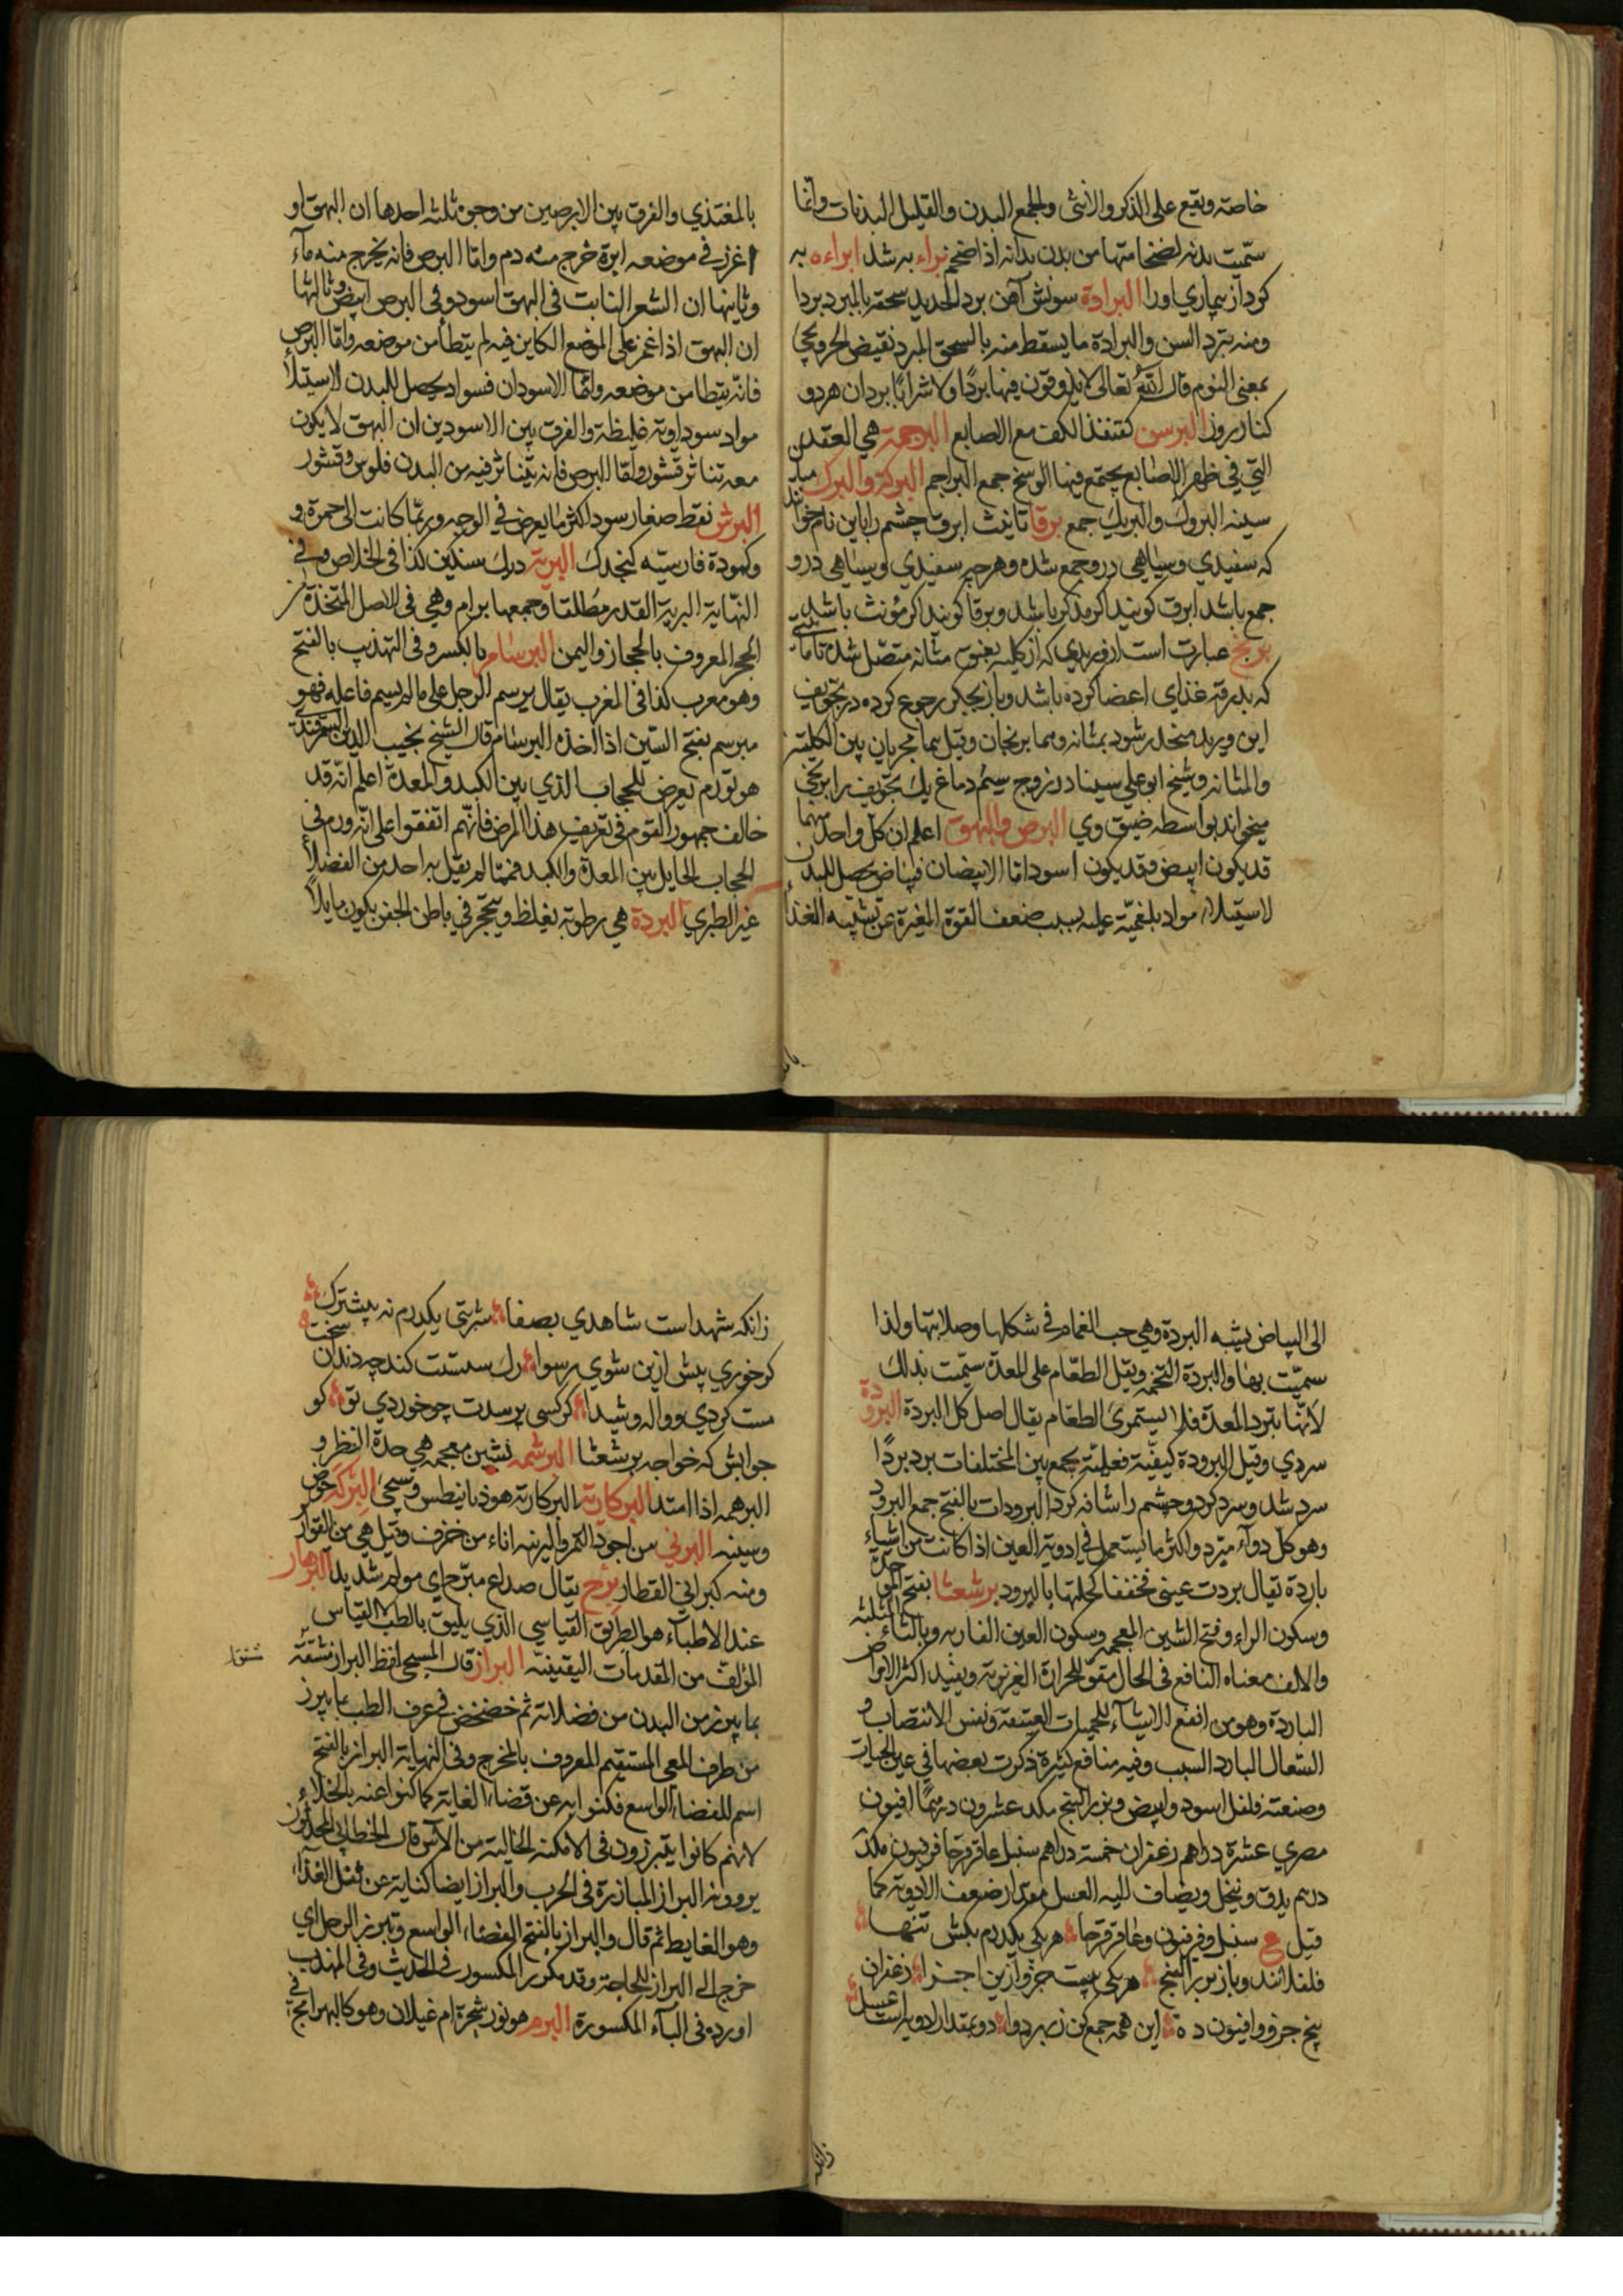 خاصة ويقع على الذكر والانثى والجمع البدن والقليل البدنات وانما
سمّيت بدنة لضخامتها من بدن بدانة اذا ضخم براء به شد ابراءه به
كرد از بيماري اورا البرادة سونش آهن برد الحديد سحقه بالمبرد بردا
ومنه تبرد السن والبرادة ما يسقط منه بالسحق البرد نقيض الحر ويجئ
بمعنى النوم قال الله تعالى لا يذوقون فيها بردًا ولا شرابًا بردان هردو
كنار روز البرسن كقنفذ الكف مع الاصابع البرجمة هي العقدة
التي في ظهر الاصابع يجتمع فيها الوسخ جمع البراجم البركة والبرك ميان
سينه البروك والبريك جمع برقا تانيث ابرق چشم را باين نام خوانند
كه سفيدي وسياهي در و جمع شده وهر چه سفيدي وسياهي در و
جمع باشد ابرق كويند اكر مذكر باشد وبرقا كويند اكر مؤنث باشد
بربخ عبارت است از وريدي كه از كليه بعنق مثانه متصل شده تا مائيتي
كه بدرقه غذاي اعضا كرده باشد وباز بجكر رجوع كرده در تجويف
اين وريد منحدر شود بمثانه وهما بربخان وقيل هما مجريان بين الكلية
والمثانه وشيخ ابو علي سينا در زوج سيم دماغ يك تجويف را بربخي
ميخواند بواسطه ضيق وي البرص والبهق اعلم ان كل واحد منهما
قد يكون ابيض وقد يكون اسود اما الابيضان فبياض يحصل للبدن
لاستيلاء مواد بلغميّة عليه بسبب ضعف القوة المغيرة عن تشبيه الغذاء
بالمغتذي والفرق بين الابرصين من وجوه ثلثه احدها ان البهق او
اغرز في موضعه ابرة خرج منه دم واما البرص فانه يخرج منه ماء
وثاينها ان الشعر النابت في البهق اسود وفي البرص ابيض وثالثها
ان البهق اذا غمز على الموضع الكاين فيه لم يتطأمن موضعه واما البرص
فانه يتطأمن موضعه واما الاسودان فسواد يحصل للبدن لاستيلاء
مواد سوداوية غليظة والفرق بين الاسودين ان البهق لا يكون
معه تناثر قشور واما البرص فانه يتناثر فيه من البدن فلوس وقشور
البرش نقط صغار سود اكثر ما يعرض في الوجه وربما كانت الى حمرة و
وكمودة فارسيّه كنجدك البرمة درك سنكين كذا في الخلاص وفي
النهاية البرمة القدر مطلقا وجمعها برام وهي في الاصل المتخذة من
الحجر المعروف بالحجاز واليمن البرسام بالكسر وفي التهذيب بالفتح
وهو معرب كذا في المغرب يقال برسم الرجل على ما لم يسم فاعله فهو
مبرسم بفتح السّين اذا اخذه البرسام قال الشيخ نجيب الدين السمرقندي
هو تورم يعرض للحجاب الذي بين الكبد والمعدة اعلم انه قد
خالف جمهور القوم في تعريف هذا المرض فانهم اتفقوا على انه ورم في
الحجاب الحايل بين المعدة والكبد فمما لم يقل به احد من الفضلاء
غير الطبري البردة هي رطوبة يغلظ ويتحجر في باطن الجفن يكون مايلاً
الى البياض يشبه البردة وهي حب الغمام في شكلها وصلابتها ولذا
سميّت بها والبردة التخمه وثقل الطعام على المعدة سمّيت بذلك
لانها تبرد المعدة فلا يستمرئ الطعام يقال اصل كل البردة البرودة
سردي وقيل البرودة كيفيّة فعليّة يجمع بين المختلفات برد بردًا
سرد شد وسرد كرد وچشم را شافه كرد البرودات بالفتح جمع البرود
وهو كل دواء مبرد واكثر ما يستعمل في ادوية العين اذا كانت من اشياء
باردة يقال بردت عيني مخففا كحلتها بالبرود برشعثا بفتح الموحدة
وسكون الراء وفتح الشين المعجمه وسكون العين الفاربه وبالثاء المثلثه
والالف معناه النافع في الحال مقوّ للحرارة الغريزية ويفيد اكثر الامراض
الباردة وهو من انفع الاشياء للحميات العتيقة ونفس الانتصاب و
السّعال البارد السبب وفيه منافع كثيرة ذكرت بعضها في عين الحيات
وصنعته فلفل اسود وابيض وبزر البنج مكد عشرون درهمًا افيون
مصري عشرة دراهم زعفران خمسة دراهم سنبل عاقرقرحا فربيون مكد
درهم يدق وينخل ويضاف اليه العسل مقدار ضعف الادوية كما
قيل ع سنبل وفرفيون وعاقرقرحا هر يكي يكدرم بكش تنها
فلفلانند وباز بزر البنج هر يكي بيست جزو ازين اجزا زعفران
پنج جزو وافيون ده اين همه جمع كن زبهر دوا دو بمقدار ادويه است عسل
زانكه
زانكه شهد است شاهدي بصفا شربتي يكدرم نه بيشترك
كر خوري پيش ازين شوي رسوا رك سستت كند چو دندان سخت
مست كردي و واله وشيدا كر كسي پرسدت چو خوردي تو كو
جوابش كه خواجه برشعثا البرشمه بشين معجمه هي حدة النظر و
البرهمه اذا امتد البركاريه البركاريه هو ذيانيطس وسيجئ البركه حوض
وسينه البرني من اجود التمر والبرنيه اناء من خزف وقيل هي من القوارير
ومنه كبراني القطار برح يقال صداع مبرّح اي مولم شديد البرهان
عند الاطباء هو الطريق القياسي الذي يليق بالطب القياس
المؤلف من المقدمات اليقينيّه البراز قال المسيحي لفظ البراز مشتقّة
بما يبرز من البدن من فضلاته ثم خصّص في عرف الطب بما يبرز
من طرف المعى المستقيم المعروف بالمخرج وفي النهاية البراز بالفتح
اسم للفضاء الواسع فكنوا به عن قضاء الغاية كما كنوا عنه بالخلاء
لانهم كانوا يتبرزون في الامكنة الخالية من الناس قال الخطابي المحدثون
يروونه البراز المبارزة في الحرب والبراز ايضا كناية عن ثفل الغذاء
وهو الغايط ثم قال والبراز بالفتح الفضاء الواسع وتبرز الرجل اي
خرج الى البراز للحاجة وقد تكرر المكسور في الحديث وفي المهذب
اورده في الباء المكسورة البرم هو نور شجرة ام غيلان وهو كالبهرامج في